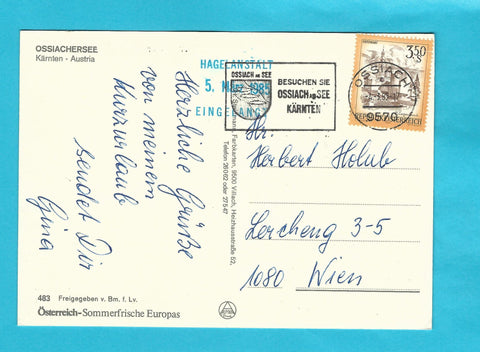 OSSIACHERSEE
Kärnten - Austria
Herzliche Grüße
von meinem
Kurzurlaub
sendet Dir
Gina
483 Freigegeben v. Bm. f. Lv.
Österreich-Sommerfrische Europas
Farbkarten, 9500 Villach,
Telefon 26062 oder 27547
HAGELANSTALT
5. März 1985
EINGELANGT
OSSIACH AM SEE
BESUCHEN SIE
OSSIACH AM SEE
KÄRNTEN
3.50
OSSIACH
9570
Hr.
Herbert Holub
Lercheng 3-5
1080 Wien